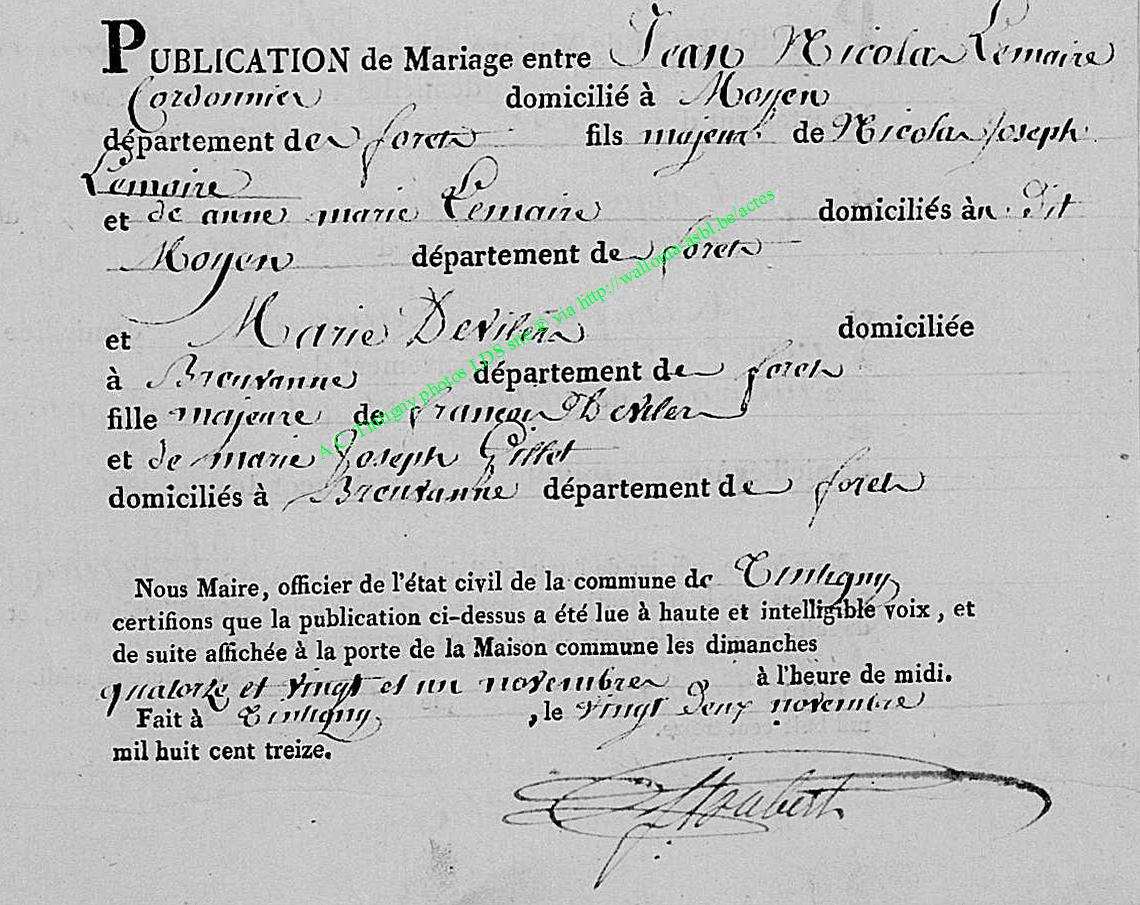 PUBLICATION de Mariage entre Jean Nicolas Lemaire
Cordonnier domicilié à Moyen
département de foret fils majeur de Nicolas Joseph
Lemaire
et de anne marie Lemaire domiciliés à dit
Moyen département de foret
et Marie Devilers domiciliée
à Breuvanne département de foret
fille majeure de françois Devilers
et de marie Joseph Gillet
domiciliés à Breuvanne département de foret
Nous Maire, officier de l'état civil de la commune de Tintigny
certifions que la publication ci-dessus a été lue à haute et intelligible voix, et
de suite affichée à la porte de la Maison commune les dimanches
quatorze et vingt et un novembre à l'heure de midi.
Fait à Tintigny, le vingt deux novembre
mil huit cent treize.
A.C. Tintigny photos LDS site © via http://wallonia-asbl.be/actes